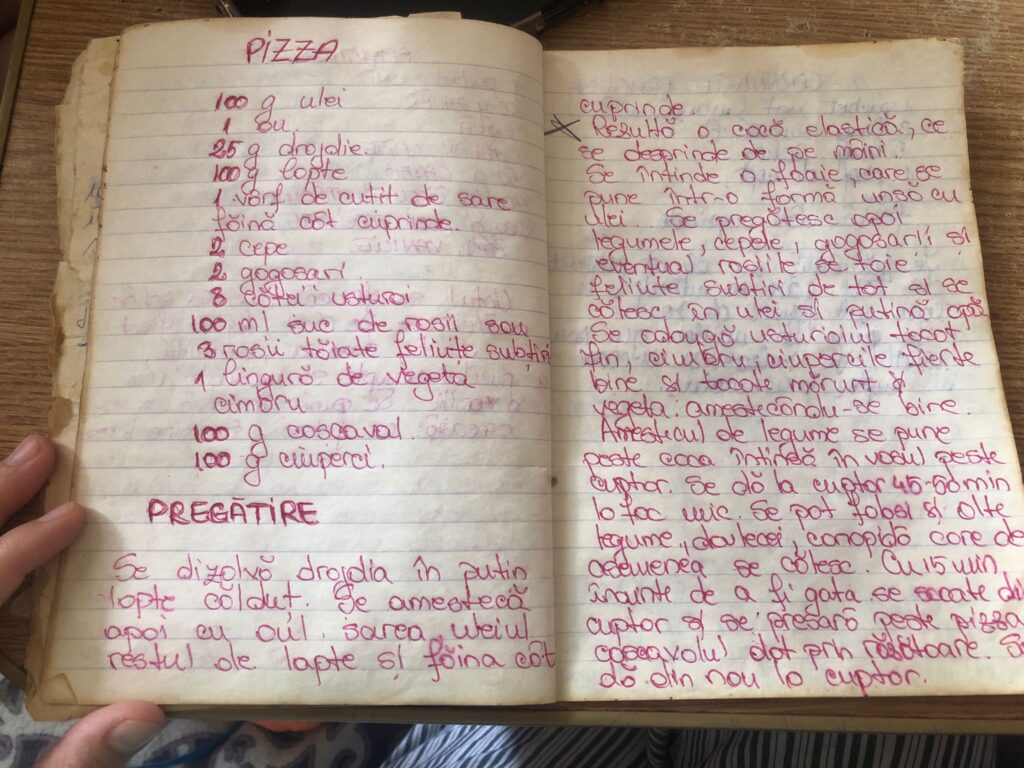 PIZZA
100 g ulei
1 ou.
25 g drojdie.
100 g lapte
1 vârf de cutit de sare
făină cât cuprinde.
2 cepe
2 gogosari.
8 căței usturoi
100 ml suc de rosii sau
3 rosii tăiate feliuțe subțiri
1 lingură de vegeta
cimbru
100 g cascaval.
100 g ciuperci.
PREGĂTIRE
Se dizolvă drojdia în putin
lapte călduț. Se amestecă
apoi cu oul, sarea, uleiul,
restul de lapte și făina cât
cuprinde.
Rezultă o cocă elastică, ce
se desprinde de pe mâini.
Se întinde o foaie, care se
pune într-o formă unsă cu
ulei. Se pregătesc apoi
legumele, cepele, gogosarii si
eventual rosiile se taie
feliute subtiri de tot si se
călesc în ulei si putină apă
Se adaugă usturoiul tocat
fin, cimbru, ciupercile fierte
bine si tocate mărunt și
vegeta. amestecându-se bine.
Amestecul de legume se pune
peste coca întinsă în vasul peste
cuptor. Se dă la cuptor 45-50 min
la foc mic. Se pot folosi si alte
legume, dovlecei, conopidă care de
asemenea se călesc. Cu 15 min
înainte de a fi gata se scoate din
cuptor si se presară peste pizza
cascavalul dat prin răzătoare. Se
dă din nou la cuptor.